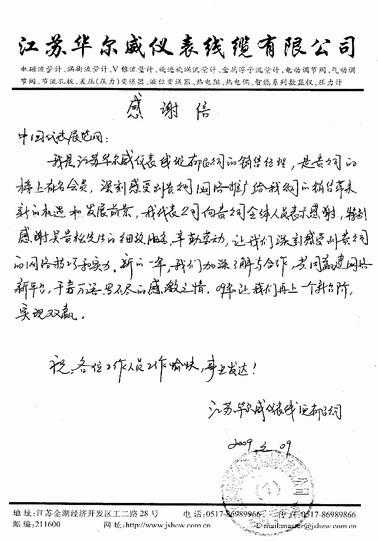 江苏华尔威仪表线缆有限公司
电磁流量计、涡街流量计、V锥流量计、旋进旋涡流量计、金属浮子流量计、电动调节阀、气动调
节阀、节流孔板、差压(压力)变送器、液位变送器、热电阻、热电偶、智能系列数显仪、压力计
感谢信
中国仪表展览网:
我是江苏华尔威仪表线缆有限公司的销售经理,是贵公司的
榜上有名会员,深刻感受到贵公司网络推广给我公司的销售带来
新的机遇和发展前景,我代表公司向贵公司全体人员表示感谢,特别
感谢吴 先生的细致服务,辛勤劳动,让我们深刻感受到贵公司
的网络技巧和实力.新的一年,我们加深了解与合作,共同赢建网络
新平台,千言万语写不尽的感激之情.09年让我们再上一个新台阶,
实现双赢.
祝,各位工作人员工作愉快,事业发达!
江苏华尔威仪表线缆有限公司
2009.2.09
地址:江苏金湖经济开发区工二路28号 电话:0517-86989966 传真:0517-86989866
邮编:211600 网址:http://www.jshew.com.cn E-mail:master@jshew.com